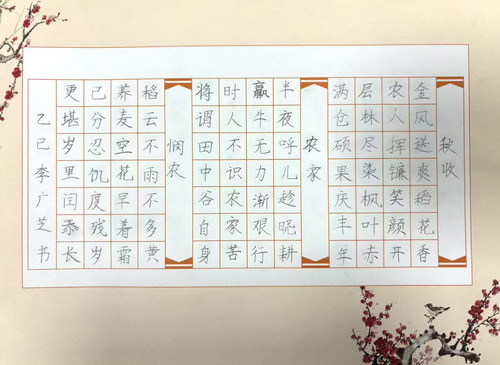 秋收
金风送爽稻花香
农人挥镰笑颜开
层林尽染枫叶赤
满仓硕果庆丰年
农家
半夜呼儿趁晓耕
赢牛无力渐艰行
时人不识农家苦
将谓田中谷自身
悯农
稻云不雨不多黄
荞麦空花早着霜
已分忍饥度残岁
更堪岁里闰添长
乙巳李广芝书